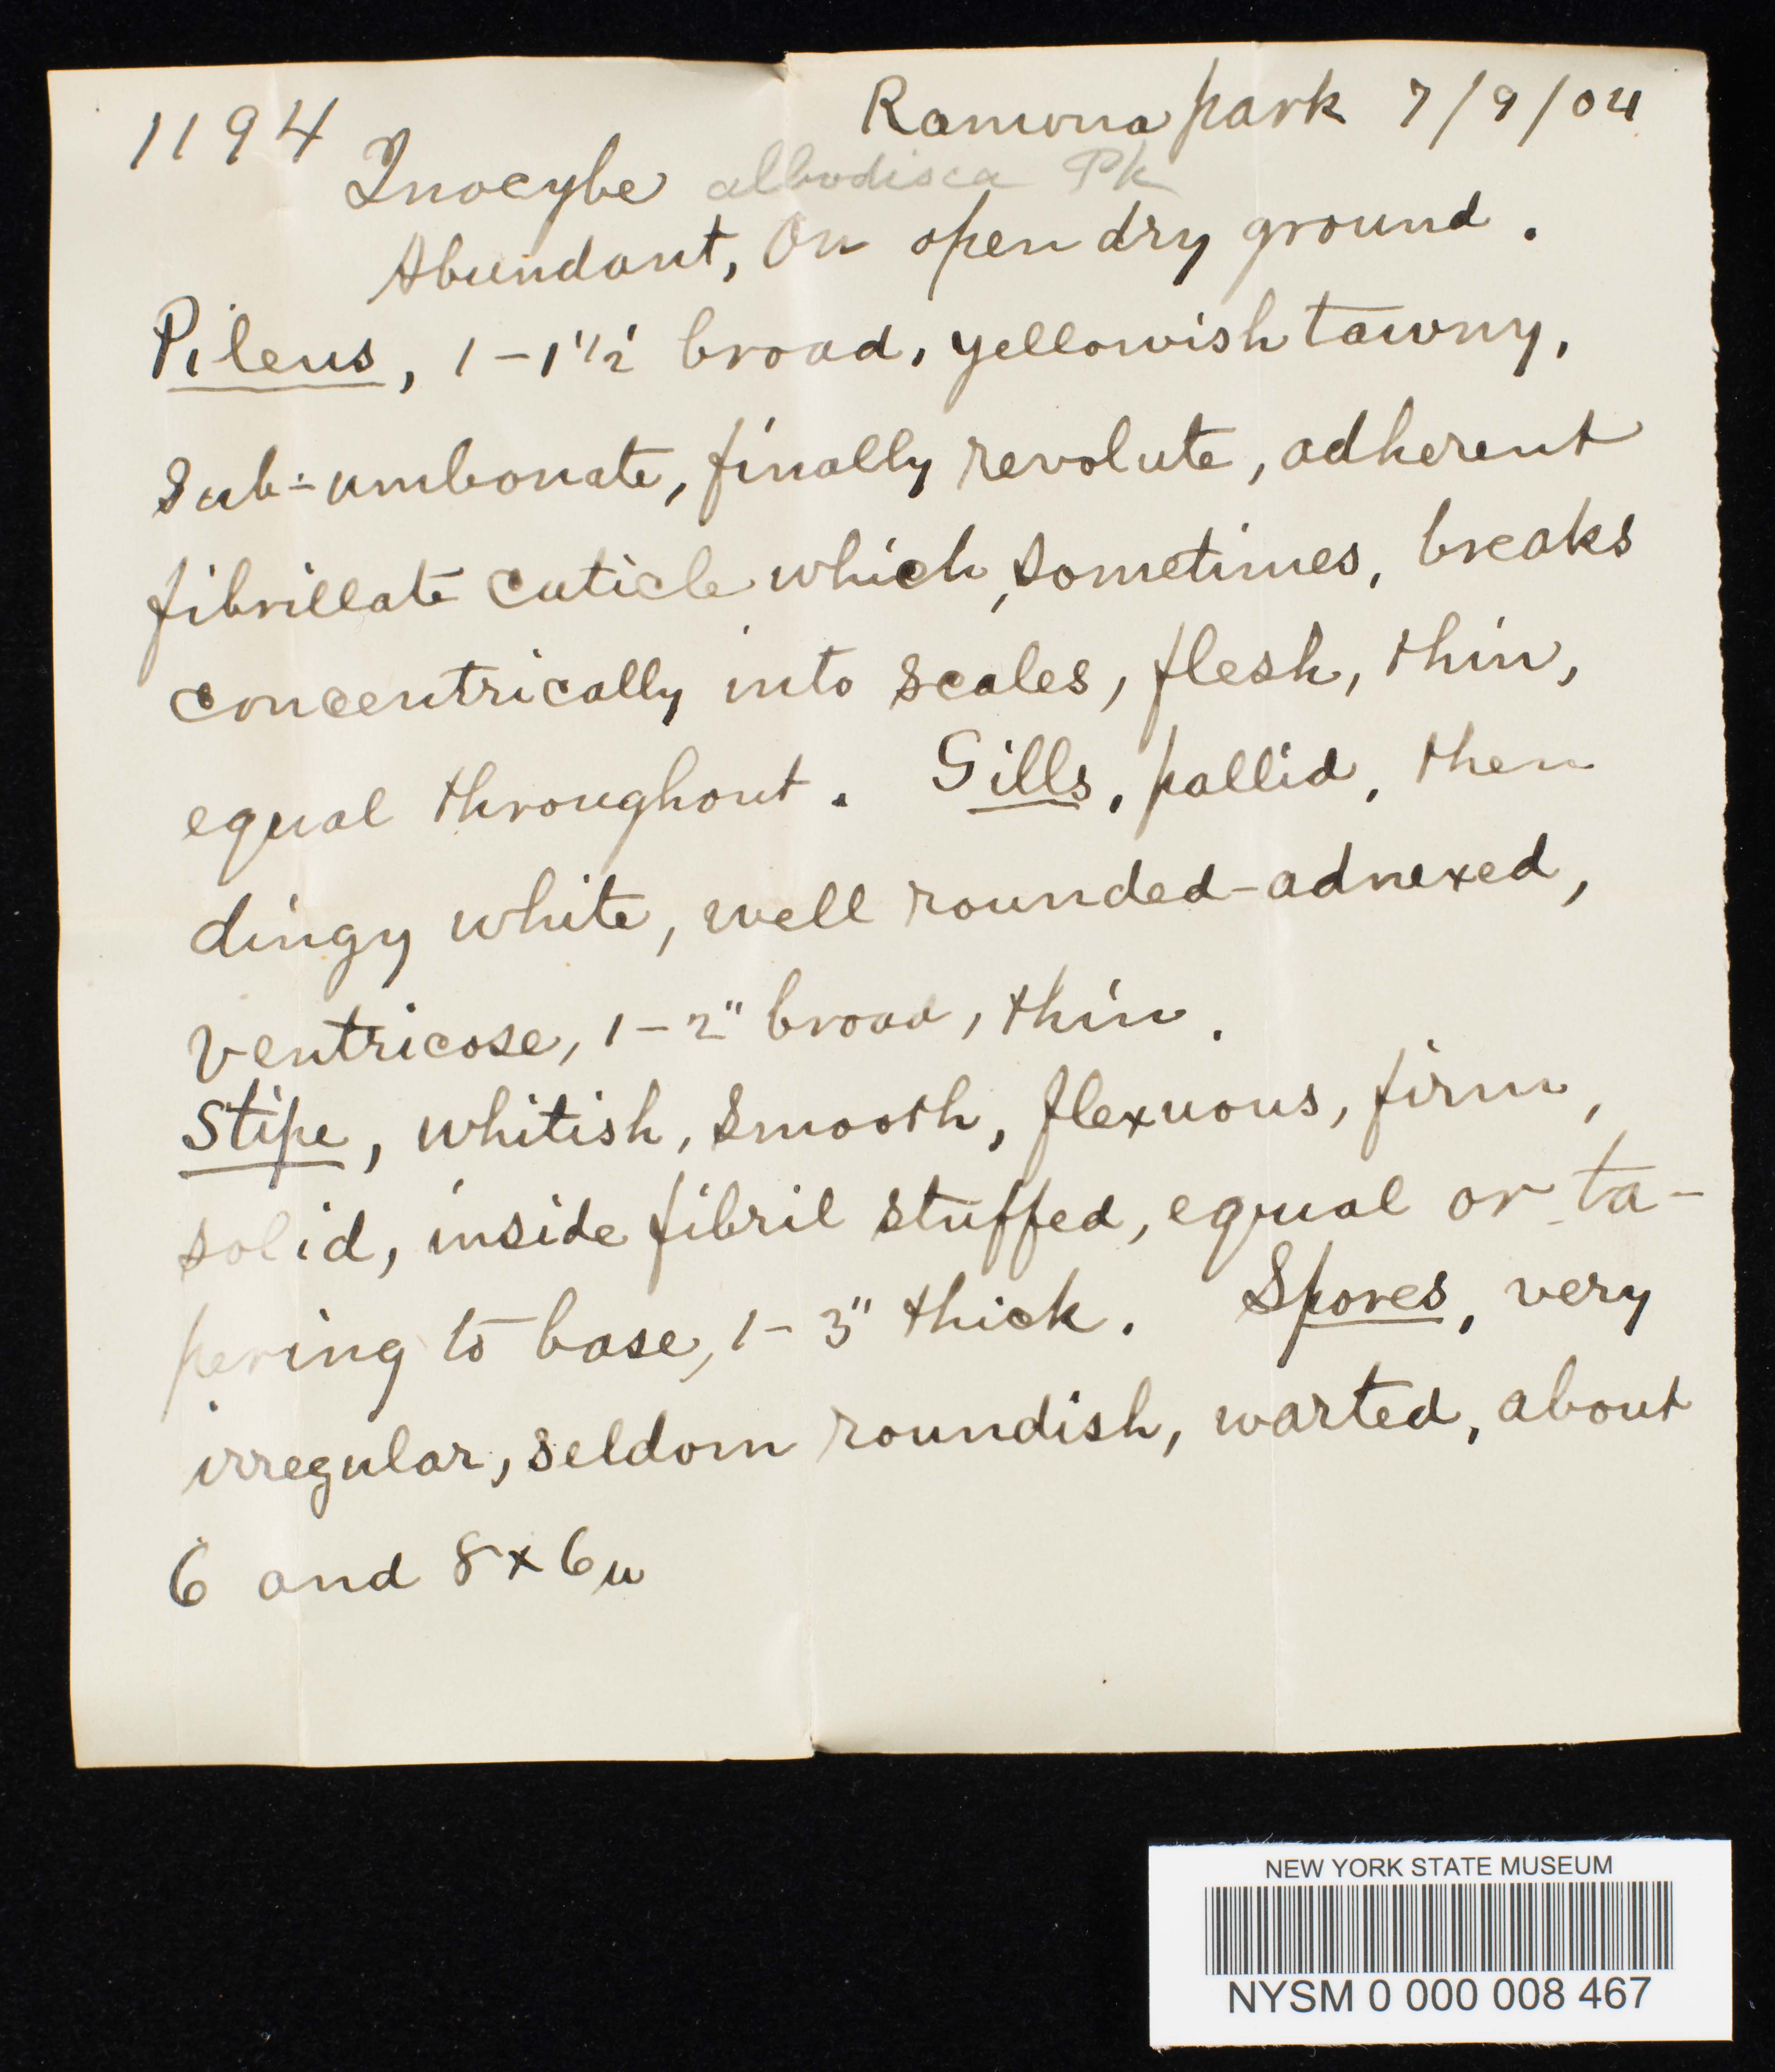 1194
Ramona park 7/9/04
Inocybe albodisca Pk
Abundant, On open dry ground.
Pileus, 1-1 1/2 broad, yellowish tawny,
sub-umbonate, finally revolute, adherent
fibrillate cuticle which, sometimes, breaks
concentrically into scales, flesh, thin,
equal throughout. Gills, pallid, then
dingy white, well rounded-adnexed,
ventricose, 1-2" broad, thin.
Stipe, whitish, smooth, flexuous, firm,
solid, inside fibril stuffed, equal or ta-
pering to base, 1-3" thick. Spores, very
irregular, seldom roundish, warted, about
6 and 8x6u
NEW YORK STATE MUSEUM
NYSM 0 000 008 467